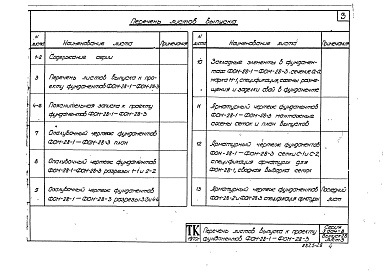 Перечень листов выпуска
3
N листа
Наименование листа
Примечание
1-2
Содержание серии
3
Перечень листов выпуска к проекту фундаментов ФОН-28-1 — ФОН-28-3
4-6
Пояснительная записка к проекту
фундаментов ФОН-28-1 — ФОН-28-3
7
Опалубочный чертеж фундаментов
ФОН-28-1 — ФОН-28-3 план
8
Опалубочный чертеж фундаментов
ФОН-28-1 — ФОН-28-3 разрезы 1-1 и 2-2
9
Опалубочный чертеж фундаментов
ФОН-28-1 — ФОН-28-3 разрезы 3-3 и 4-4
N листа
Наименование листа
Примечание
10
Закладные элементы в фундаментах
ФОН-28-1 — ФОН-28-3
11
Арматурный чертеж фундаментов
ФОН-28-1 — ФОН-28-3 монтажные
схемы сеток и план выпусков
12
Арматурный чертеж фундаментов
ФОН-28-1 — ФОН-28-3 сетки С-1 и С-2,
спецификация арматуры для
ФОН-28-1, сводная выборка сеток
13
Арматурный чертеж фундаментов
ФОН-28-2 и ФОН-28-3 спецификация арматуры
Последний лист
ТК
Перечень листов выпуска к проекту
фундаментов ФОН-28-1 — ФОН-28-3
Серия
Выпуск 28
Лист 3
4